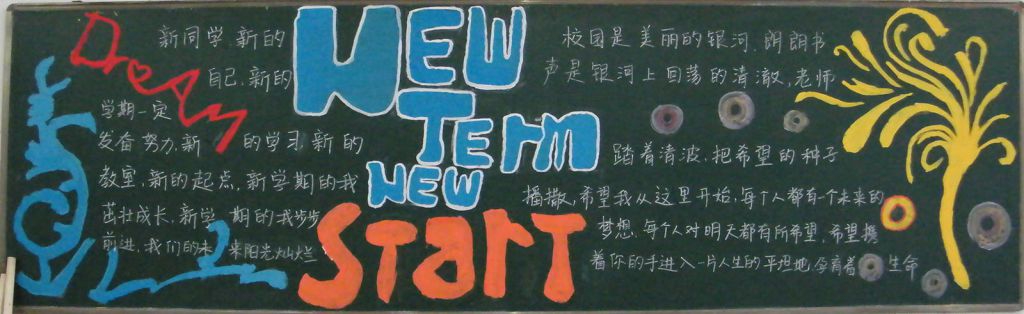 DreAm
新同学、新的
自己、新的
学期一定
发奋努力,新 的学习,新的
教室,新的起点,新学期的我
茁壮成长,新学期的我步步
前进,我们的未来阳光灿烂
NEW
TErm
NEW
STarT
校园是美丽的银河,朗朗书
声是银河上回荡的清澈,老师
踏着清波,把希望的种子
播撒,希望我从这里开始,每个人都有一个未来的
梦想,每个人对明天都有所希望,希望携
着你的手进入一片人生的平坦地,孕育着 生命